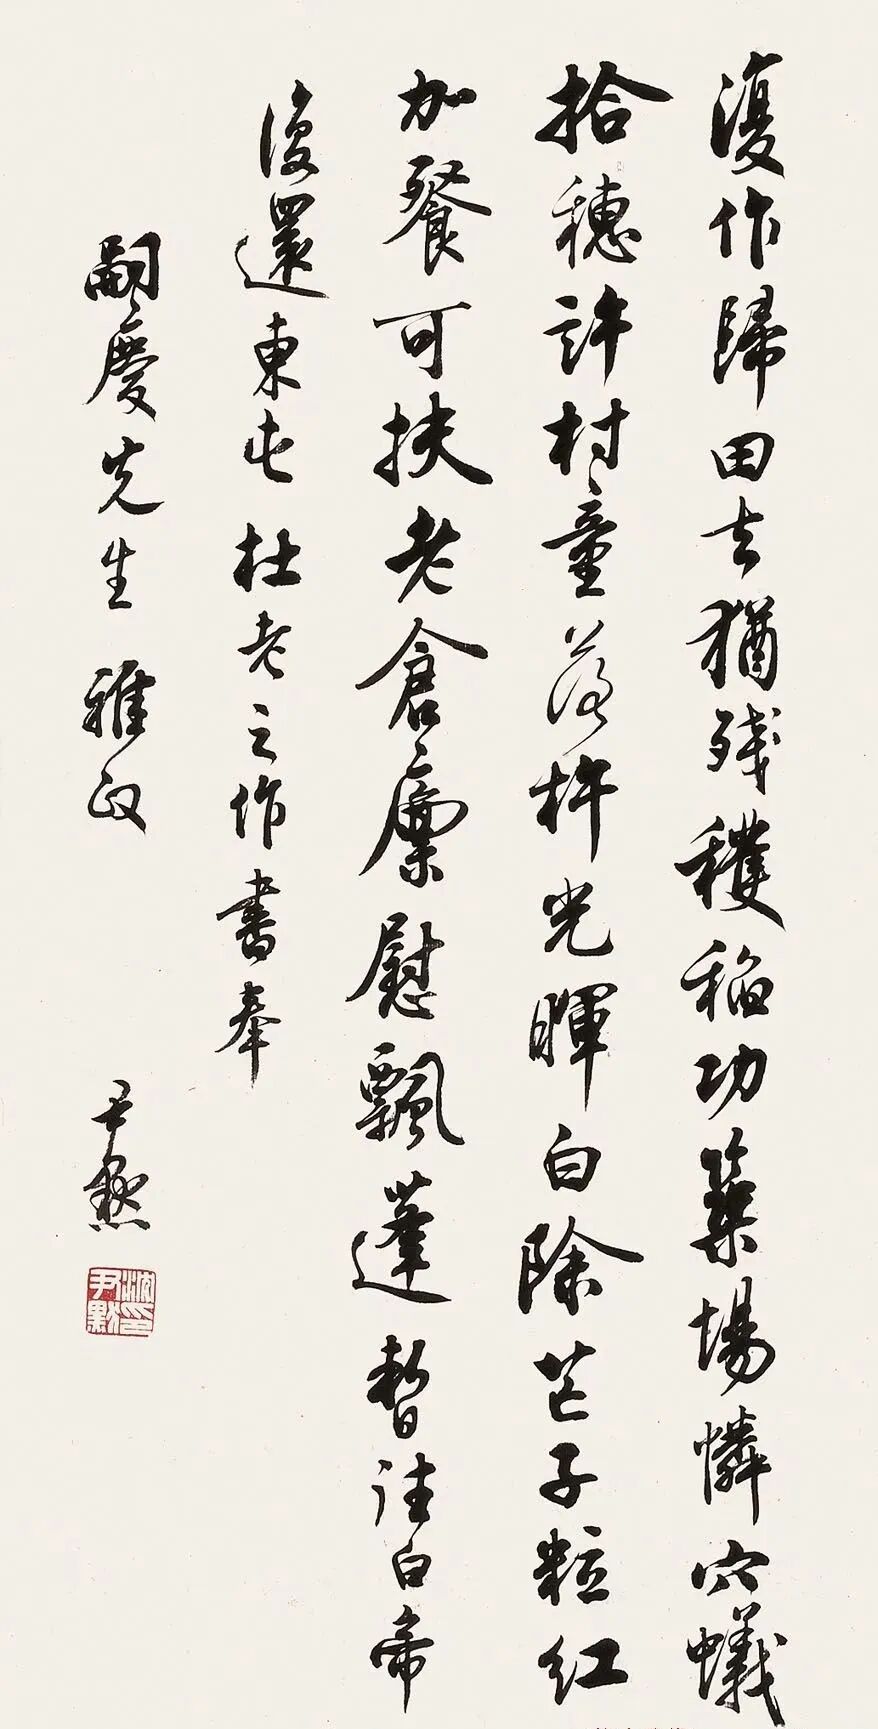 復作歸田去猶殘穫稻功築場憐穴蟻
拾穗許村童落杵光暉白除芒子粒紅
加餐可扶老倉廩慰飄蓬暫往白帝
復還東屯杜老之作書奉
嗣慶先生雅政 尹默
沈印尹默